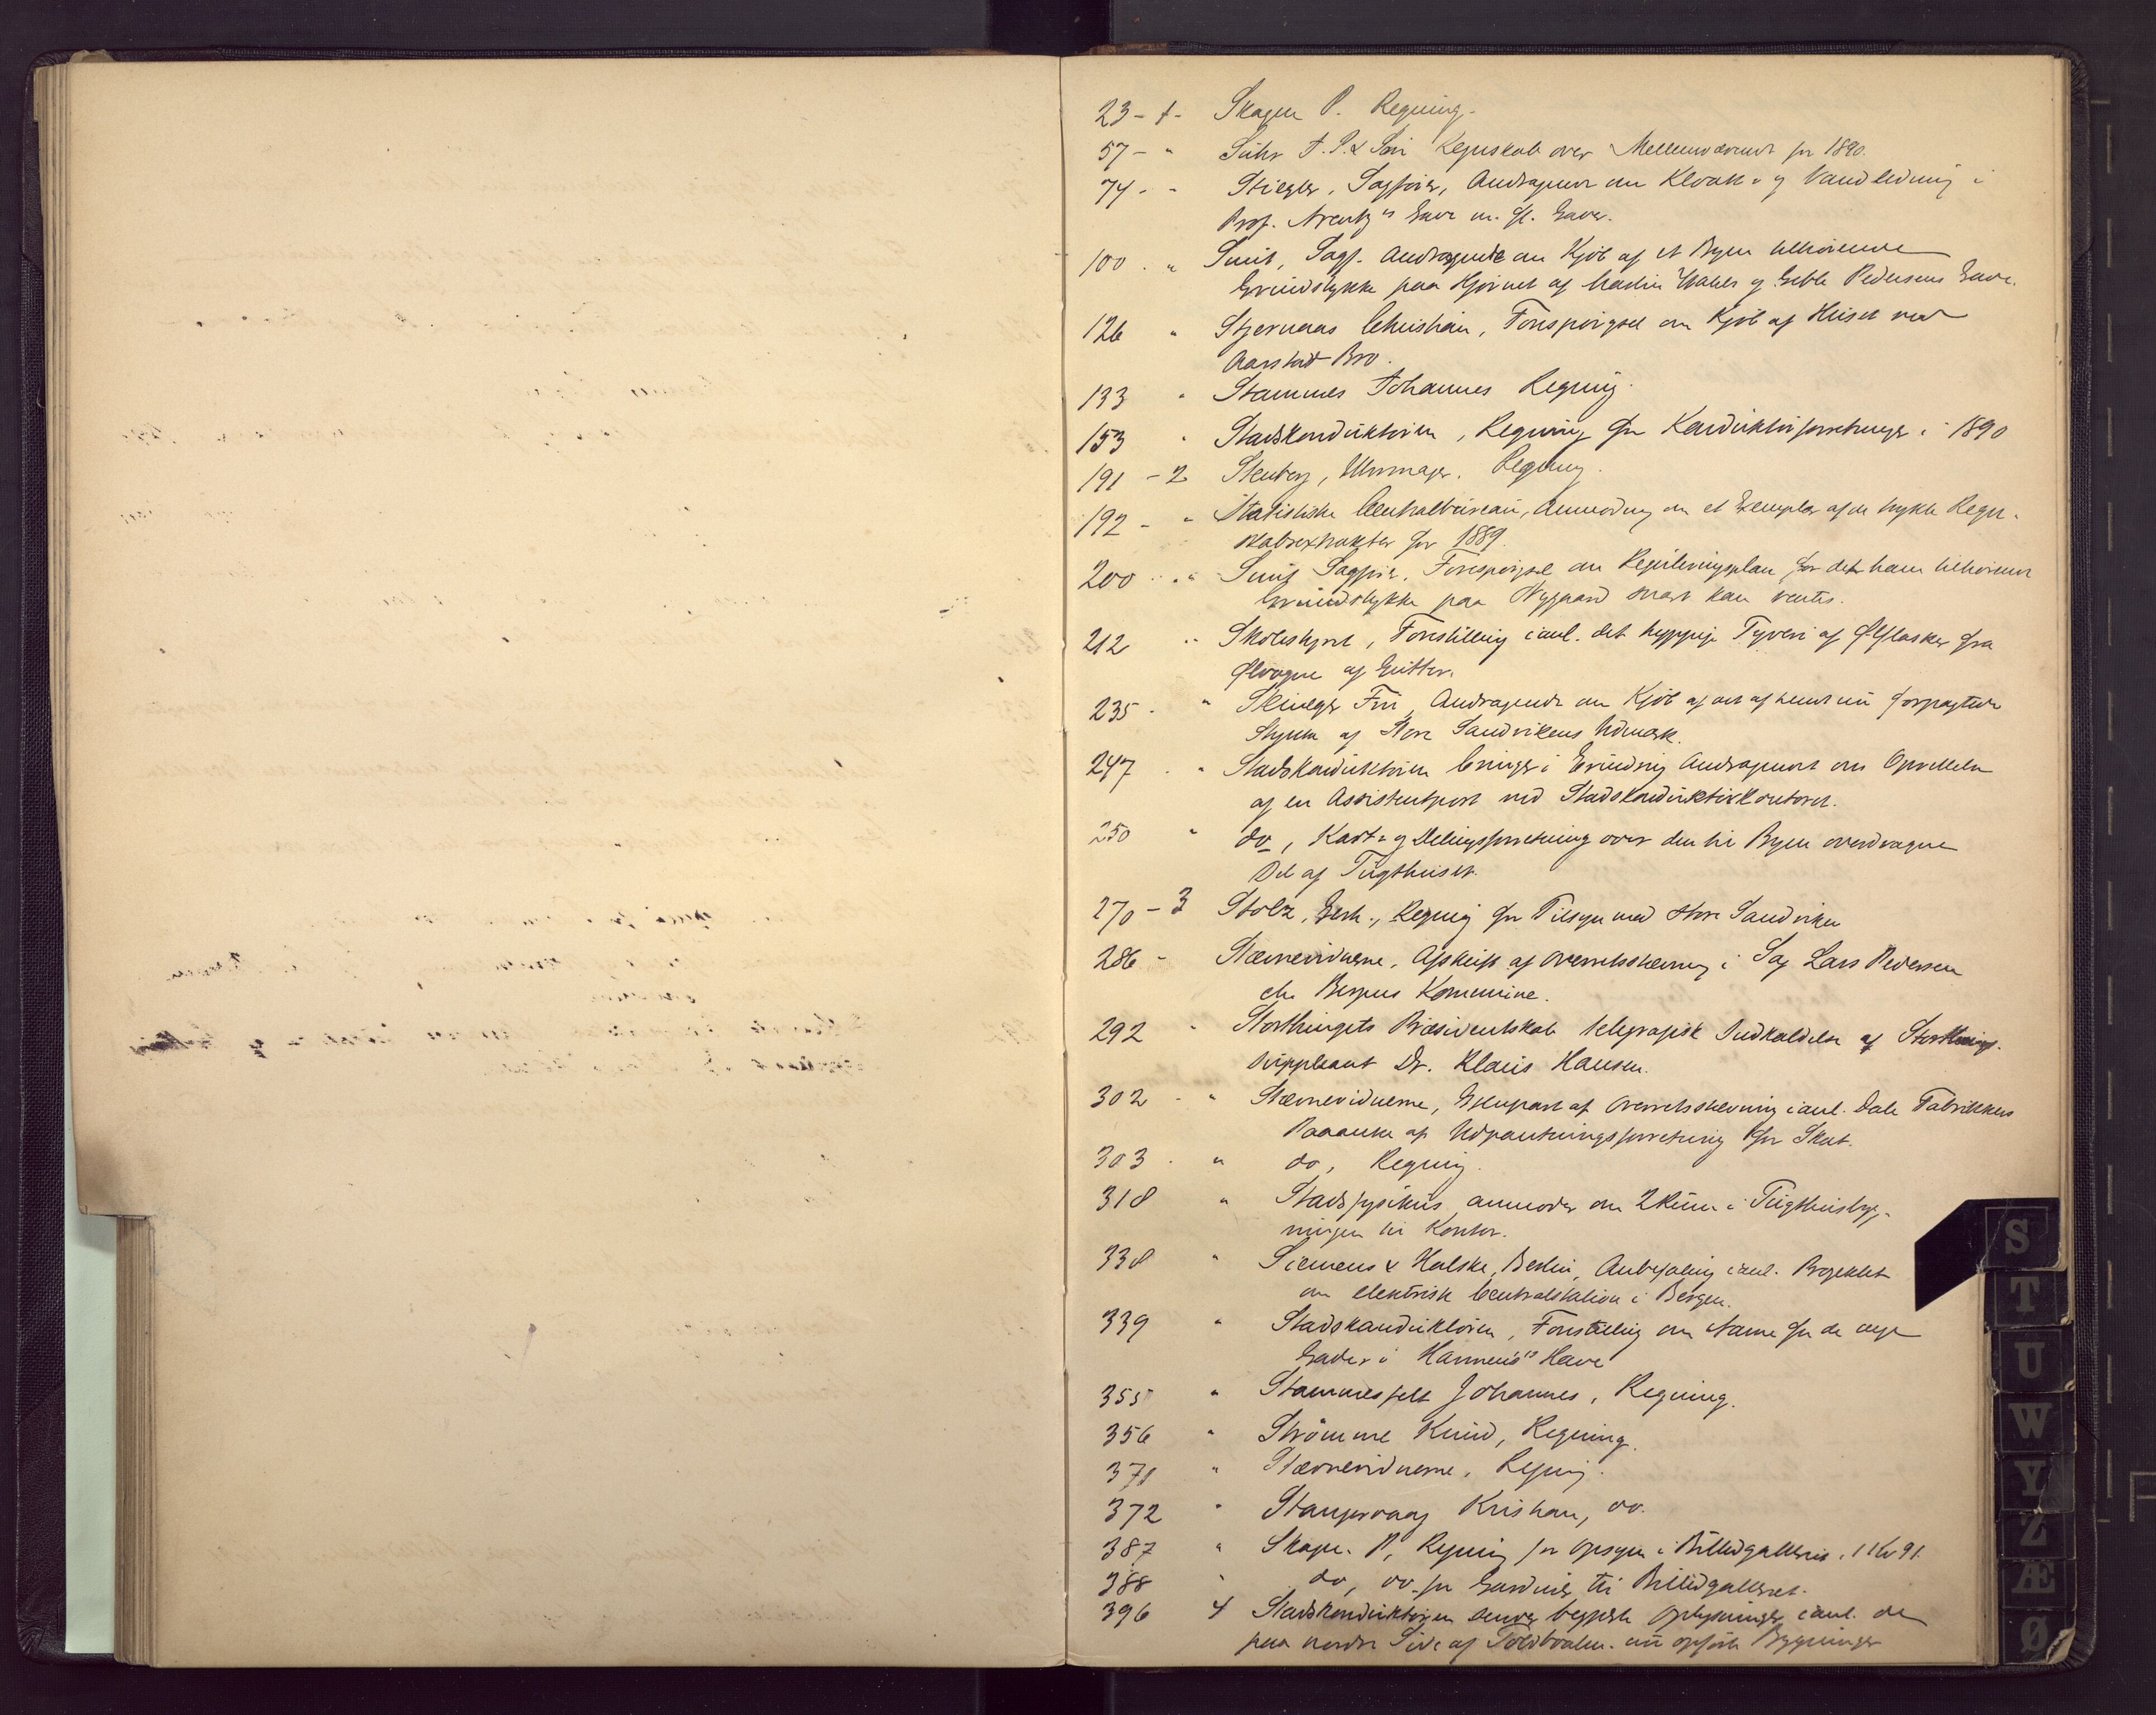 23 - 1 - Skagen P. Regning.
57 - " Suhr J. P. & Søn Regnskab over Mellemværende for 1890.
74 - - Stiegler, Sagfører, Andragende om Kloak- og Vandledning i
Prof. Arentz's Gade m. fl. Gader.
100 . " Smit, Sagf. Andragende om Kjøb af et Byen tilhørende
Grundstykke paa Hjørnet af Martin Vahls og Geble Pedersens Gade.
126 " Stjernaas Christian, Forespørgsel om Kjøb af Huset ved
Aarstad Bro.
133 " Stammes Johannes Regning.
153 " Stadskonduktøren, Regning for Konduktørforretninger i 1890
191 - 2 Stenberg, Uhrmager. Regning.
192 - " Statistiske Centralbureau, Anmodning om et Exemplar af de trykte Regn-
skabsextrakter for 1889.
200 . " Smit Sagfører, Forespørgsel om Reguleringsplan for det ham tilhørende
Grundstykke paa Nygaard snart kan ventes.
212 " Skolestyret, Forestilling i anl. det hyppige Tyveri af Ølflasker fra
Ølvogne af Gutter.
235 . " Fru, Andragende om Kjøb af det af hende nu forpagtede
Stykke af Store Sandvikens Udmark.
247 . " Stadskonduktøren bringer i Erindring Andragendet om Oprettelse
af en Assistentpost ved Stadskonduktørkontoret.
250 " do, Kart- og Delingsforretning over den til Byen overdragne
Del af Tugthuset.
270 - 3 Stolz, Gerh., Regning for Tilsyn med Store Sandviken
286 - Stævnevidnerne, Afskrift af Overretsstævning i Sag Lars Pedersen
ctr. Bergens Kommune.
292 " Storthingets Præsidentskab telegrafisk Indkaldelse af Storthings-
suppleant Dr. Klaus Hansen.
302 - " Stævnevidnerne, Gjenpart af Overretsstævning i anl. Dale Fabrikkers
Paaanke af Udpantningsforretning for Skat.
303 . " do, Regning.
318 " Stadsfysikus anmoder om 2 Rum i Tugthusbyg-
ningen til Kontor.
338 " Siemens & Halske, Berlin, Anbefaling i anl. Projektet
om elektrisk Centralstation i Bergen.
339 " Stadskonduktøren, Forestilling om Navne for de nye
Gader i Hanneus' Have
355 " Stammes Johannes, Regning.
356 " Strømme Knud, Regning.
371 " Stævnevidnerne, Regning.
372 " Kristian, do.
387 " Skagen P, Regning for Opsyn i Billedgalleriet 91.
388 " do, do for Gardiner til Billedgalleriet.
396 4 Stadskonduktøren sender begjærte Oplysninger i anl. de
paa nordre Side af Toldbodalm. nu opførte Bygninger
S
T
U
W
Y
Z
Æ
Ø